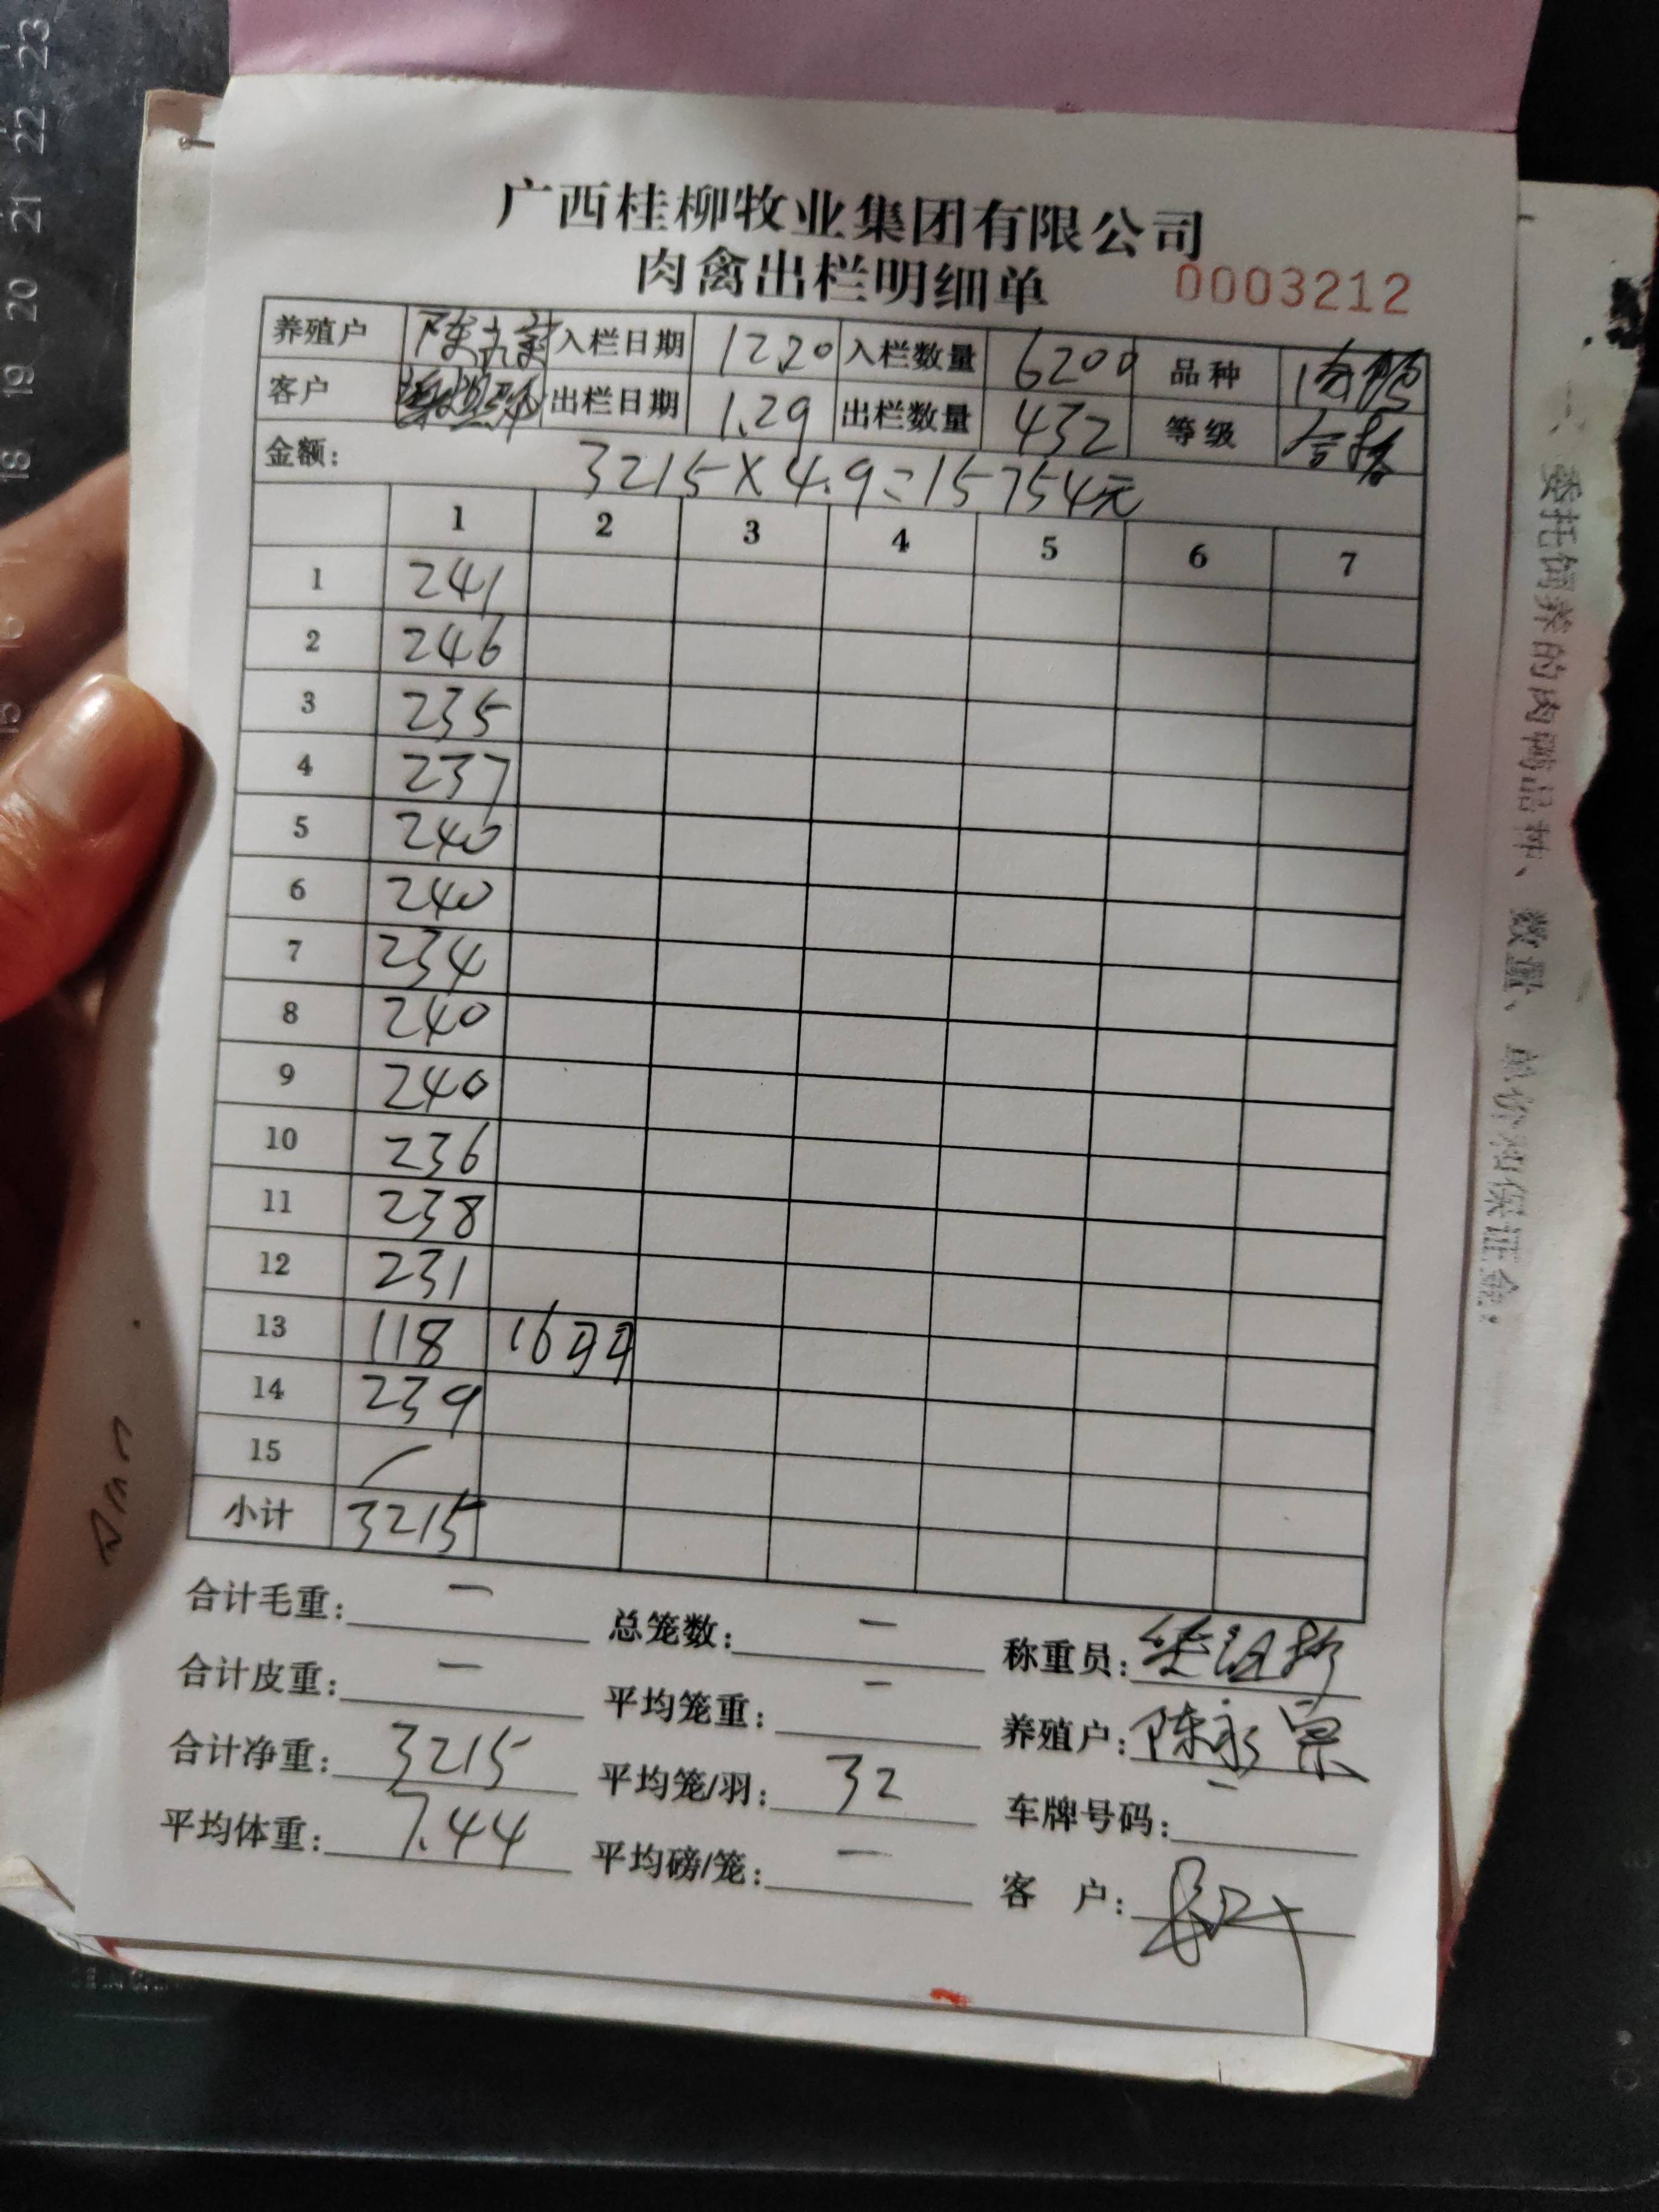 广西桂柳牧业集团有限公司
肉禽出栏明细单 0003212
养殖户 陈永宗 入栏日期 12.20 入栏数量 6200 品种
客户 出栏日期 1.29 出栏数量 432 等级 合格
金额: 3215×4.9=15754元
1 2 3 4 5 6 7
1 241
2 246
3 235
4 237
5 240
6 240
7 234
8 240
9 240
10 236
11 238
12 231
13 118 16羽
14 239
15 /
小计 3215
合计毛重: — 总笼数: — 称重员:
合计皮重: — 平均笼重: — 养殖户: 陈永宗
合计净重: 3215 平均笼/羽: 32 车牌号码: —
平均体重: 7.44 平均磅/笼: — 客 户:
一、委托饲养的肉鸭品种、数量、单价和保证金:
23
22
21
20
19
18
16
15